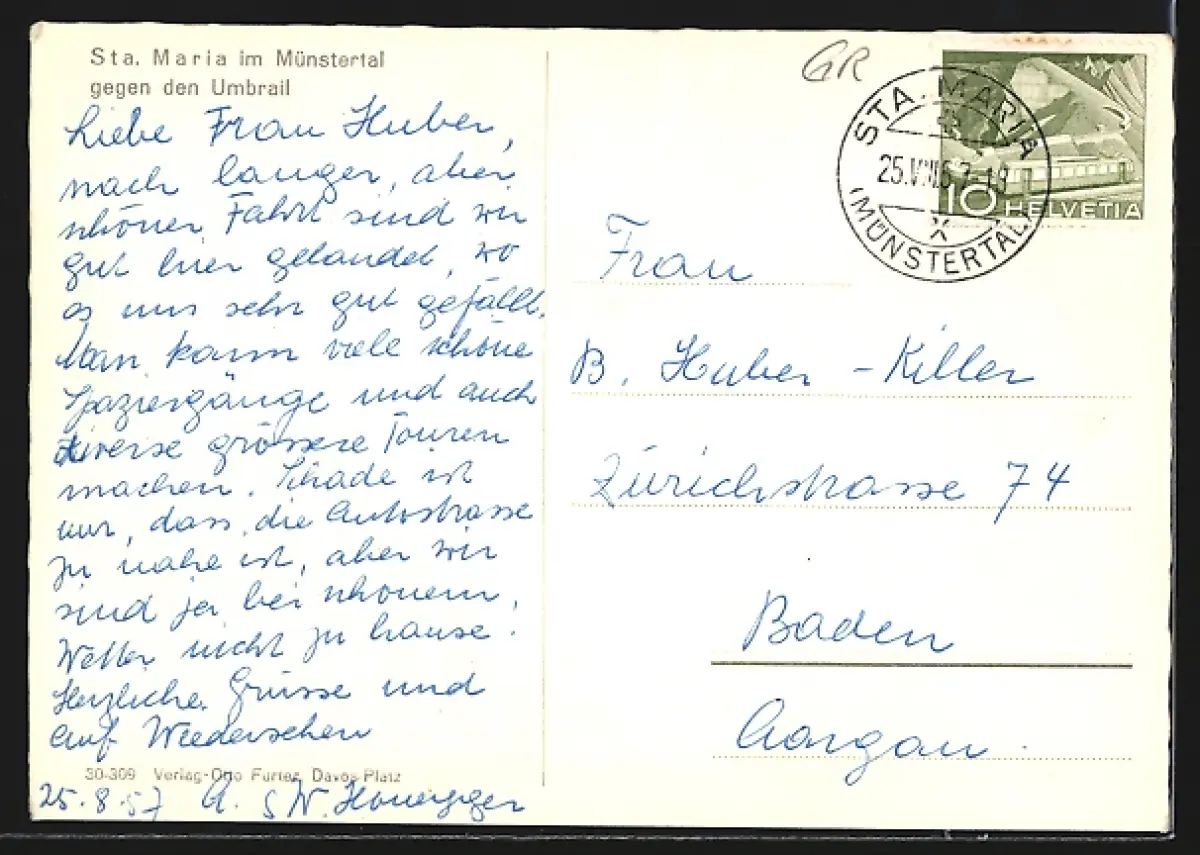 Sta. Maria im Münstertal
gegen den Umbrail
Liebe Frau Huber,
nach langer, aber
schöner Fahrt sind wir
gut hier gelandet, wo
es uns sehr gut gefällt.
Man kann viele schöne
Spaziergänge und auch
diverse grössere Touren
machen. Schade ist
nur, dass die Autostrasse
zu nahe ist, aber wir
sind ja bei schönem
Wetter nicht zu hause.
Herzliche Grüsse und
auf Wiedersehen
30-309 Verlag Otto Furter, Davos-Platz
25.8.57 A. & W. Honegger
GR
STA. MARIA
25.VIII.57-18
(MÜNSTERTAL)
10 HELVETIA
Frau
B. Huber - Killer
Zürichstrasse 74
Baden
Aargau.